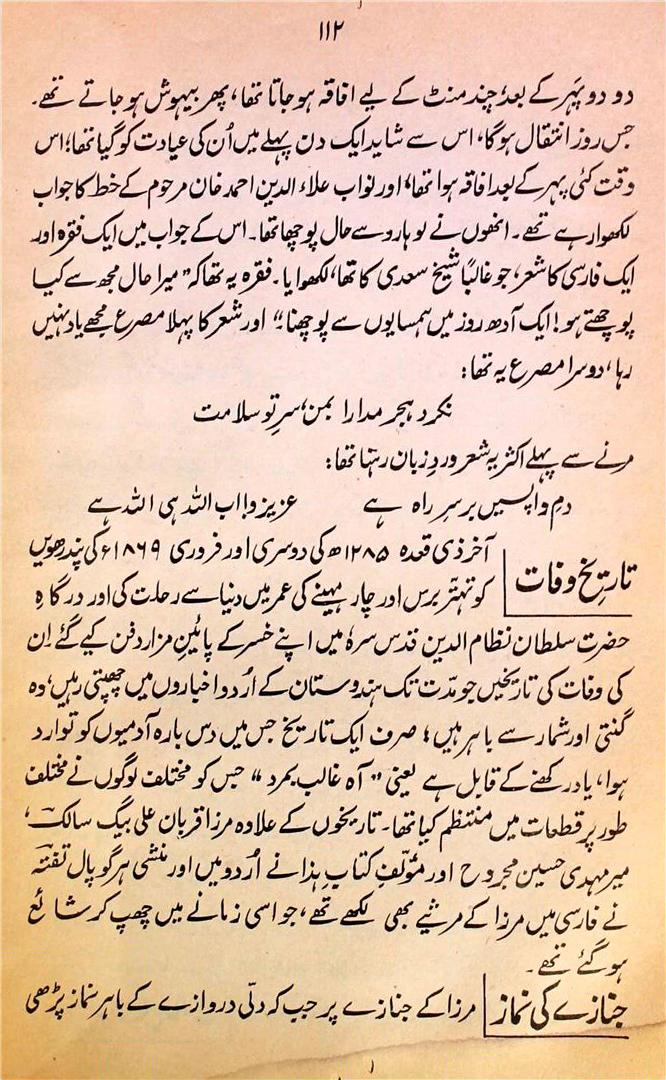 ۱۱۲
دو دو پہر کے بعد چند منٹ کے لیے افاقہ ہو جاتا تھا، پھر بیہوش ہو جاتے تھے۔
جس روز انتقال ہوگا، اس سے شاید ایک دن پہلے میں اُن کی عیادت کو گیا تھا؛ اس
وقت کئی پہر کے بعد افاقہ ہوا تھا، اور نواب علاء الدین احمد خان مرحوم کے خط کا جواب
لکھوا رہے تھے۔ انھوں نے لوہارو سے حال پوچھا تھا۔ اس کے جواب میں ایک فقرہ اور
ایک فارسی کا شعر، جو غالباً شیخ سعدی کا تھا، لکھوایا۔ فقرہ یہ تھا کہ "میرا حال مجھ سے کیا
پوچھتے ہو! ایک آدھ روز میں ہمسایوں سے پوچھنا۔" اور شعر کا پہلا مصرع مجھے یاد نہیں
رہا، دوسرا مصرع یہ تھا:
نکرد ہجر مدارا بمن، سرِ تو سلامت
مرنے سے پہلے اکثر یہ شعر وردِ زبان رہتا تھا:
دمِ واپسیں بر سرِ راہ ہے عزیزو! اب اللہ ہی اللہ ہے
تاریخِ وفات آخر ذی قعدہ ۱۲۸۵ھ کی دوسری اور فروری ۱۸۶۹ء کی پندرھویں
کو تہتّر برس اور چار مہینے کی عمر میں دنیا سے رحلت کی اور درگاہِ
حضرت سلطان نظام الدین قدس سرہٗ میں اپنے خسر کے پائینِ مزار دفن کیے گئے۔ اِن
کی وفات کی تاریخیں جو مدّت تک ہندوستان کے اُردو اخباروں میں چھپتی رہیں، وہ
گنتی اور شمار سے باہر ہیں؛ صرف ایک تاریخ جس میں دس بارہ آدمیوں کو توارد
ہوا، یاد رکھنے کے قابل ہے یعنی "آہ غالب بمرد" جس کو مختلف لوگوں نے مختلف
طور پر قطعات میں منتظم کیا تھا۔ تاریخوں کے علاوہ مرزا قربان علی بیگ سالک،
میر مہدی حسین مجروح اور مؤلفِ کتاب ہذا نے اُردو میں اور منشی ہرگوپال تفتہ
نے فارسی میں مرزا کے مرثیے بھی لکھے تھے، جو اسی زمانے میں چھپ کر شائع
ہو گئے تھے۔
جنازے کی نماز مرزا کے جنازے پر جب کہ دلّی دروازے کے باہر نماز پڑھی